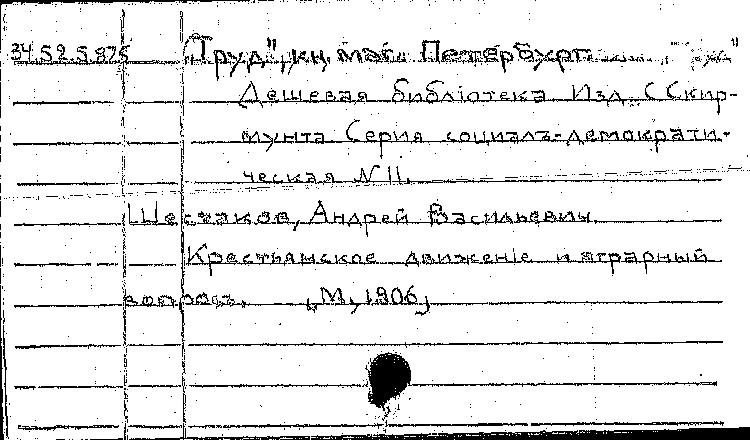 34.52.5.875 „Труд", кн. маг. Петербург.
Дешевая библіотека Изд. С Скир-
мунта Серия социалъ-демократи-
ческая N 11.
Шестаков, Андрей Васильевич
Крестьянское движеніе и аграрный
вопросъ. [М, 1906]